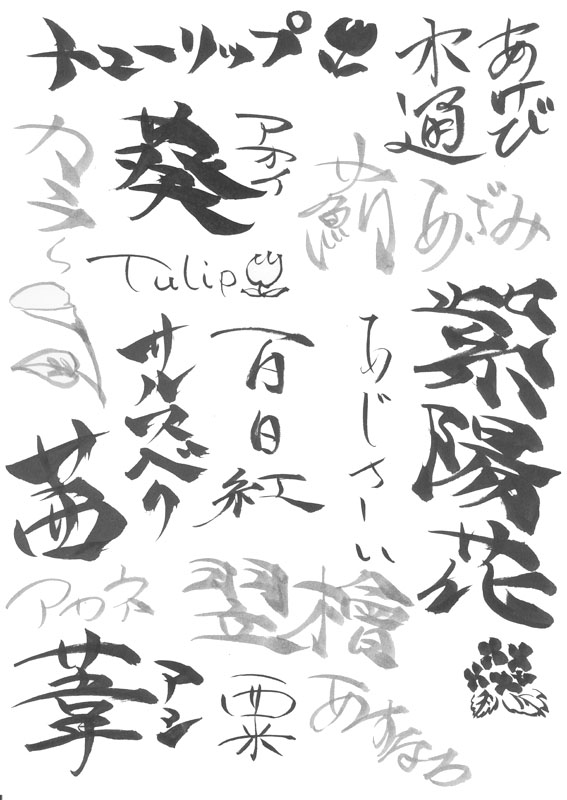 チューリップ
あけび
木通
カラ〜
葵
アオイ
薊
あざみ
Tulip
サルスベリ
百日紅
あじさーい
紫陽花
茜
アカネ
翌檜
あすなろ
葦
アシ
粟